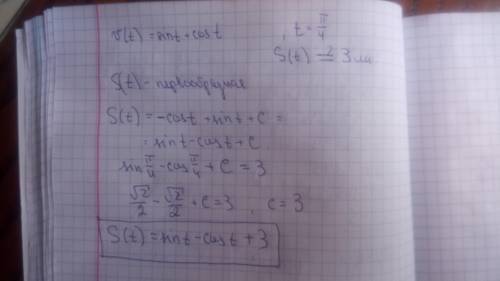 v(t) = sint + cost , t = π/4
S(t) = 3 м.
S(t) - первообразная
S(t) = -cost + sint + C =
= sint - cost + C
sin π/4 - cos π/4 + C = 3
√2/2 - √2/2 + C = 3 , C = 3
S(t) = sint - cost + 3